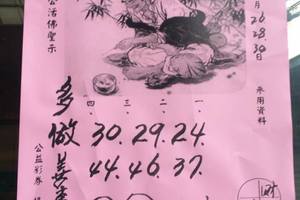 公活佛聖示
月26.28.30日
來用資料
四、三、二、一、
多做善
30.29.24.
44.46.37.
公益彩券
財